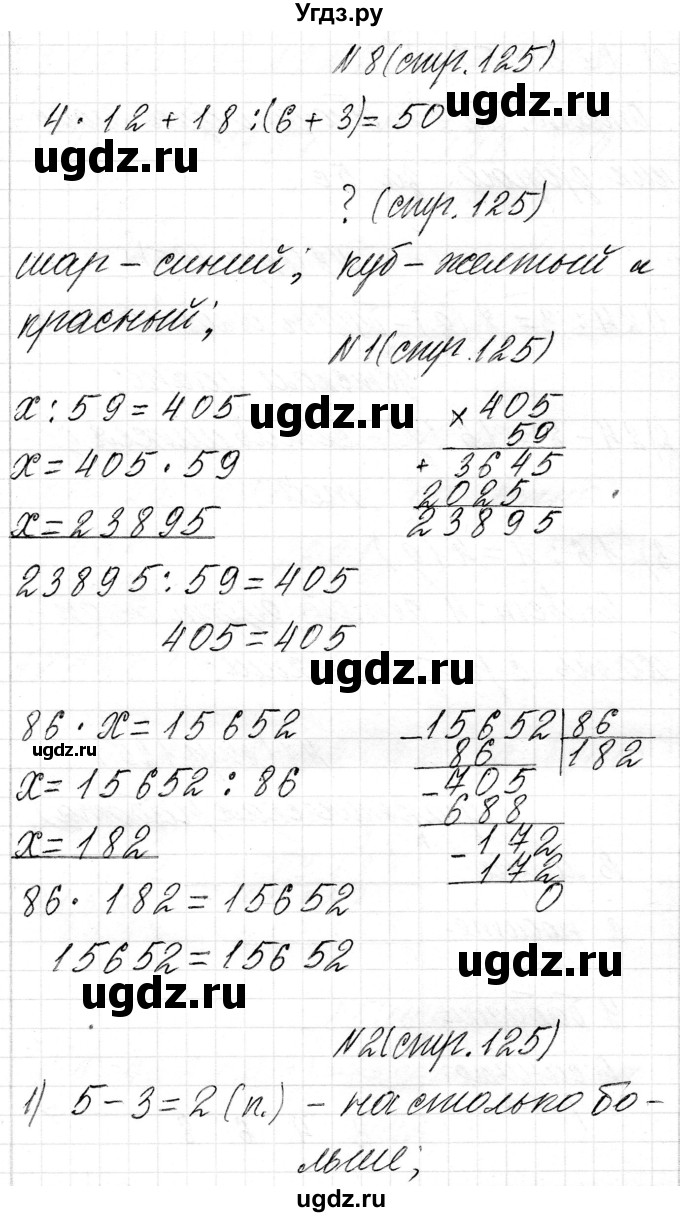 Угдз.ру
N 8 (стр. 125)
4 · 12 + 18 : (6 + 3) = 50
ugdz.ru
ugdz.ru
? (стр. 125)
шар – синий; куб – желтый и
красный;
N 1 (стр. 125)
x : 59 = 405
ugdz.ru
× 405
59
x = 405 · 59
+ 3645
2025
x = 23895
23895
23895 : 59 = 405
405 = 405
ugdz.ru
86 · x = 15652
– 15652 | 86
ugdz.ru
86
182
x = 15652 : 86
– 705
688
x = 182
– 172
– 172
86 · 182 = 15652
0
15652 = 15652
ugdz.ru
ugdz.ru
N 2 (стр. 125)
1) 5 – 3 = 2 (п.) – на столько бо-
льше;
ugdz.ru